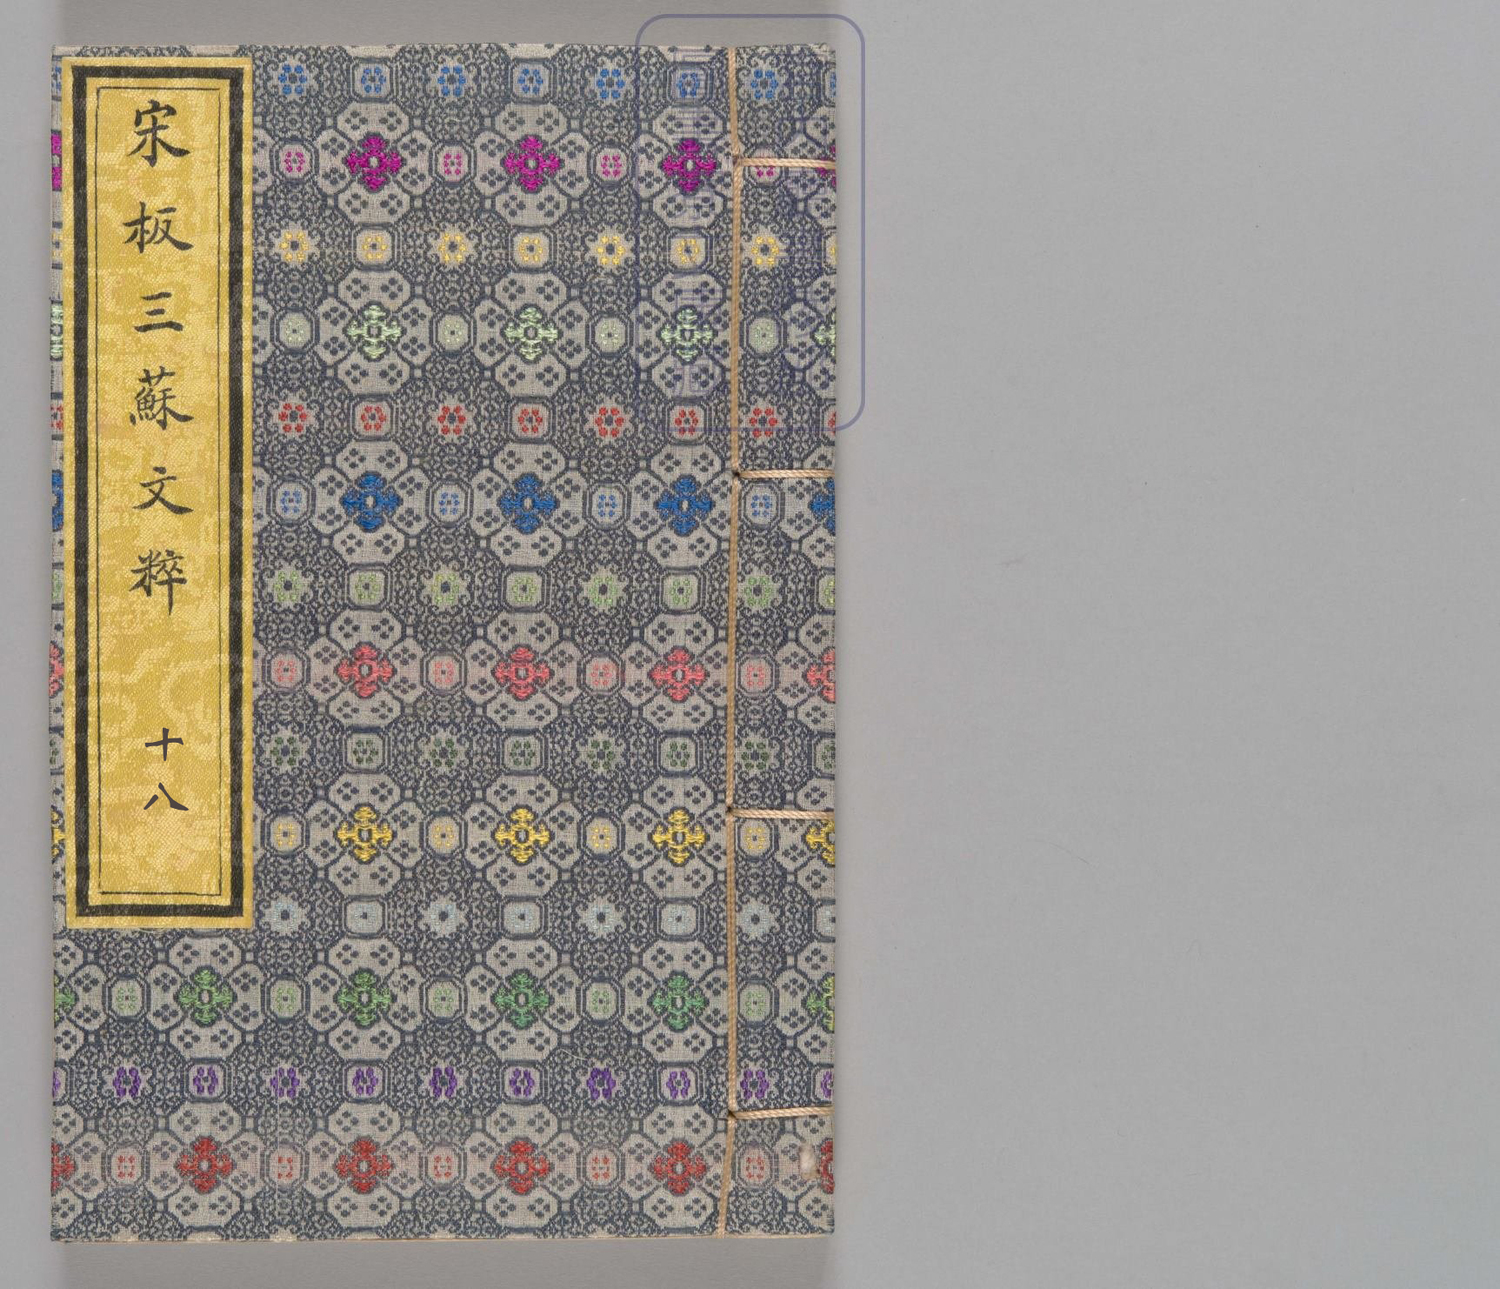 宋板三蘇文粹 十八